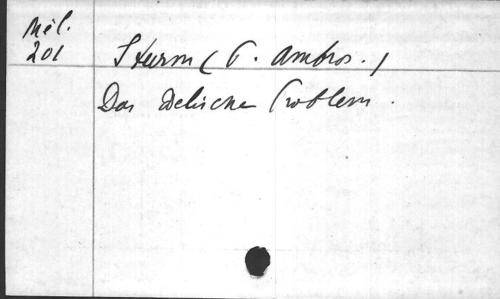 Mél.
201
Sturm (P. Ambros.)
Das Delische Problem.